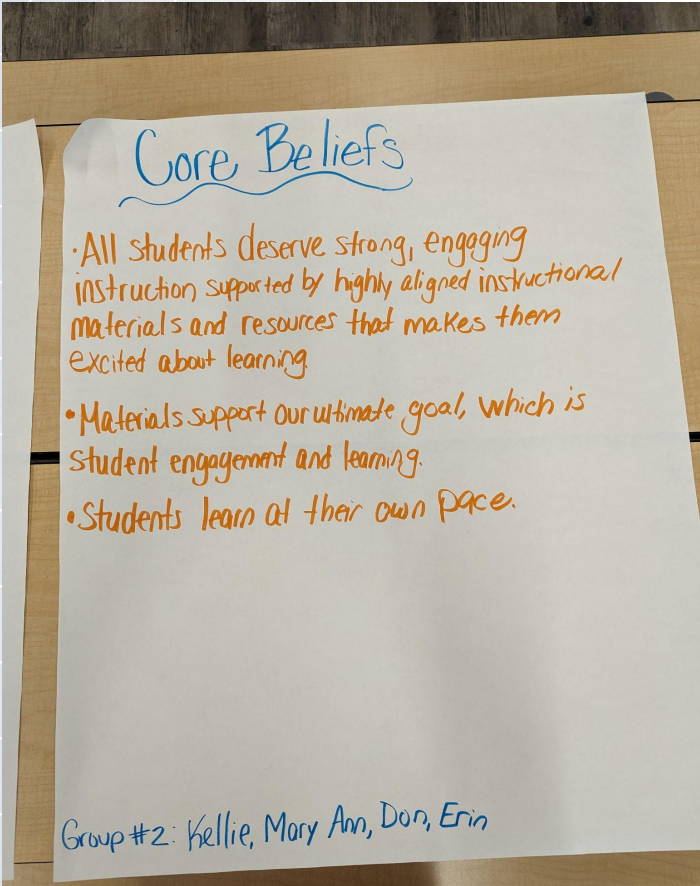 Core Beliefs
• All students deserve strong, engaging
instruction supported by highly aligned instructional
materials and resources that makes them
excited about learning.
• Materials support our ultimate goal, which is
student engagement and learning.
• Students learn at their own pace.
Group #2: Kellie, Mary Ann, Don, Erin